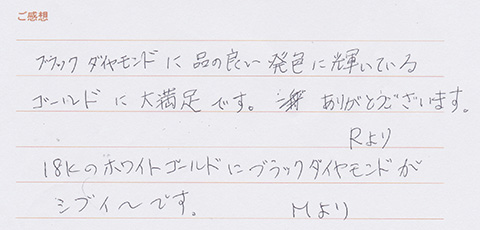 ご感想
ブラックダイヤモンドに品の良い発色に輝いている
ゴールドに大満足です。ありがとうございます。
Rより
18Kのホワイトゴールドにブラックダイヤモンドが
シブイ〜です。
Mより